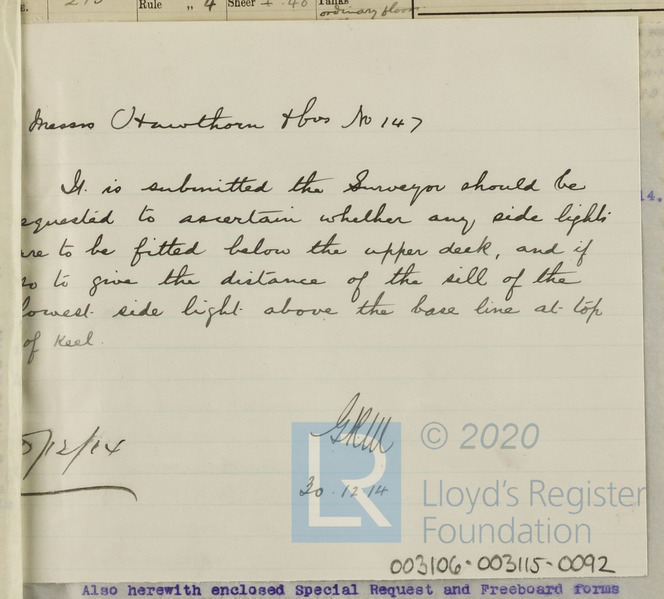 Rule " 4 Sheer + .40 Tanks
ordinary floors
Messrs Hawthorn & Cos No 147
It is submitted the Surveyor should be
equested to ascertain whether any side lights
are to be fitted below the upper deck, and if
so to give the distance of the sill of the
lowest side light above the base line at top
of Keel.
/12/14
30.12.14
LR
© 2020
Lloyd's Register
Foundation
003106-003115-0092
14.
Also herewith enclosed Special Request and Freeboard forms